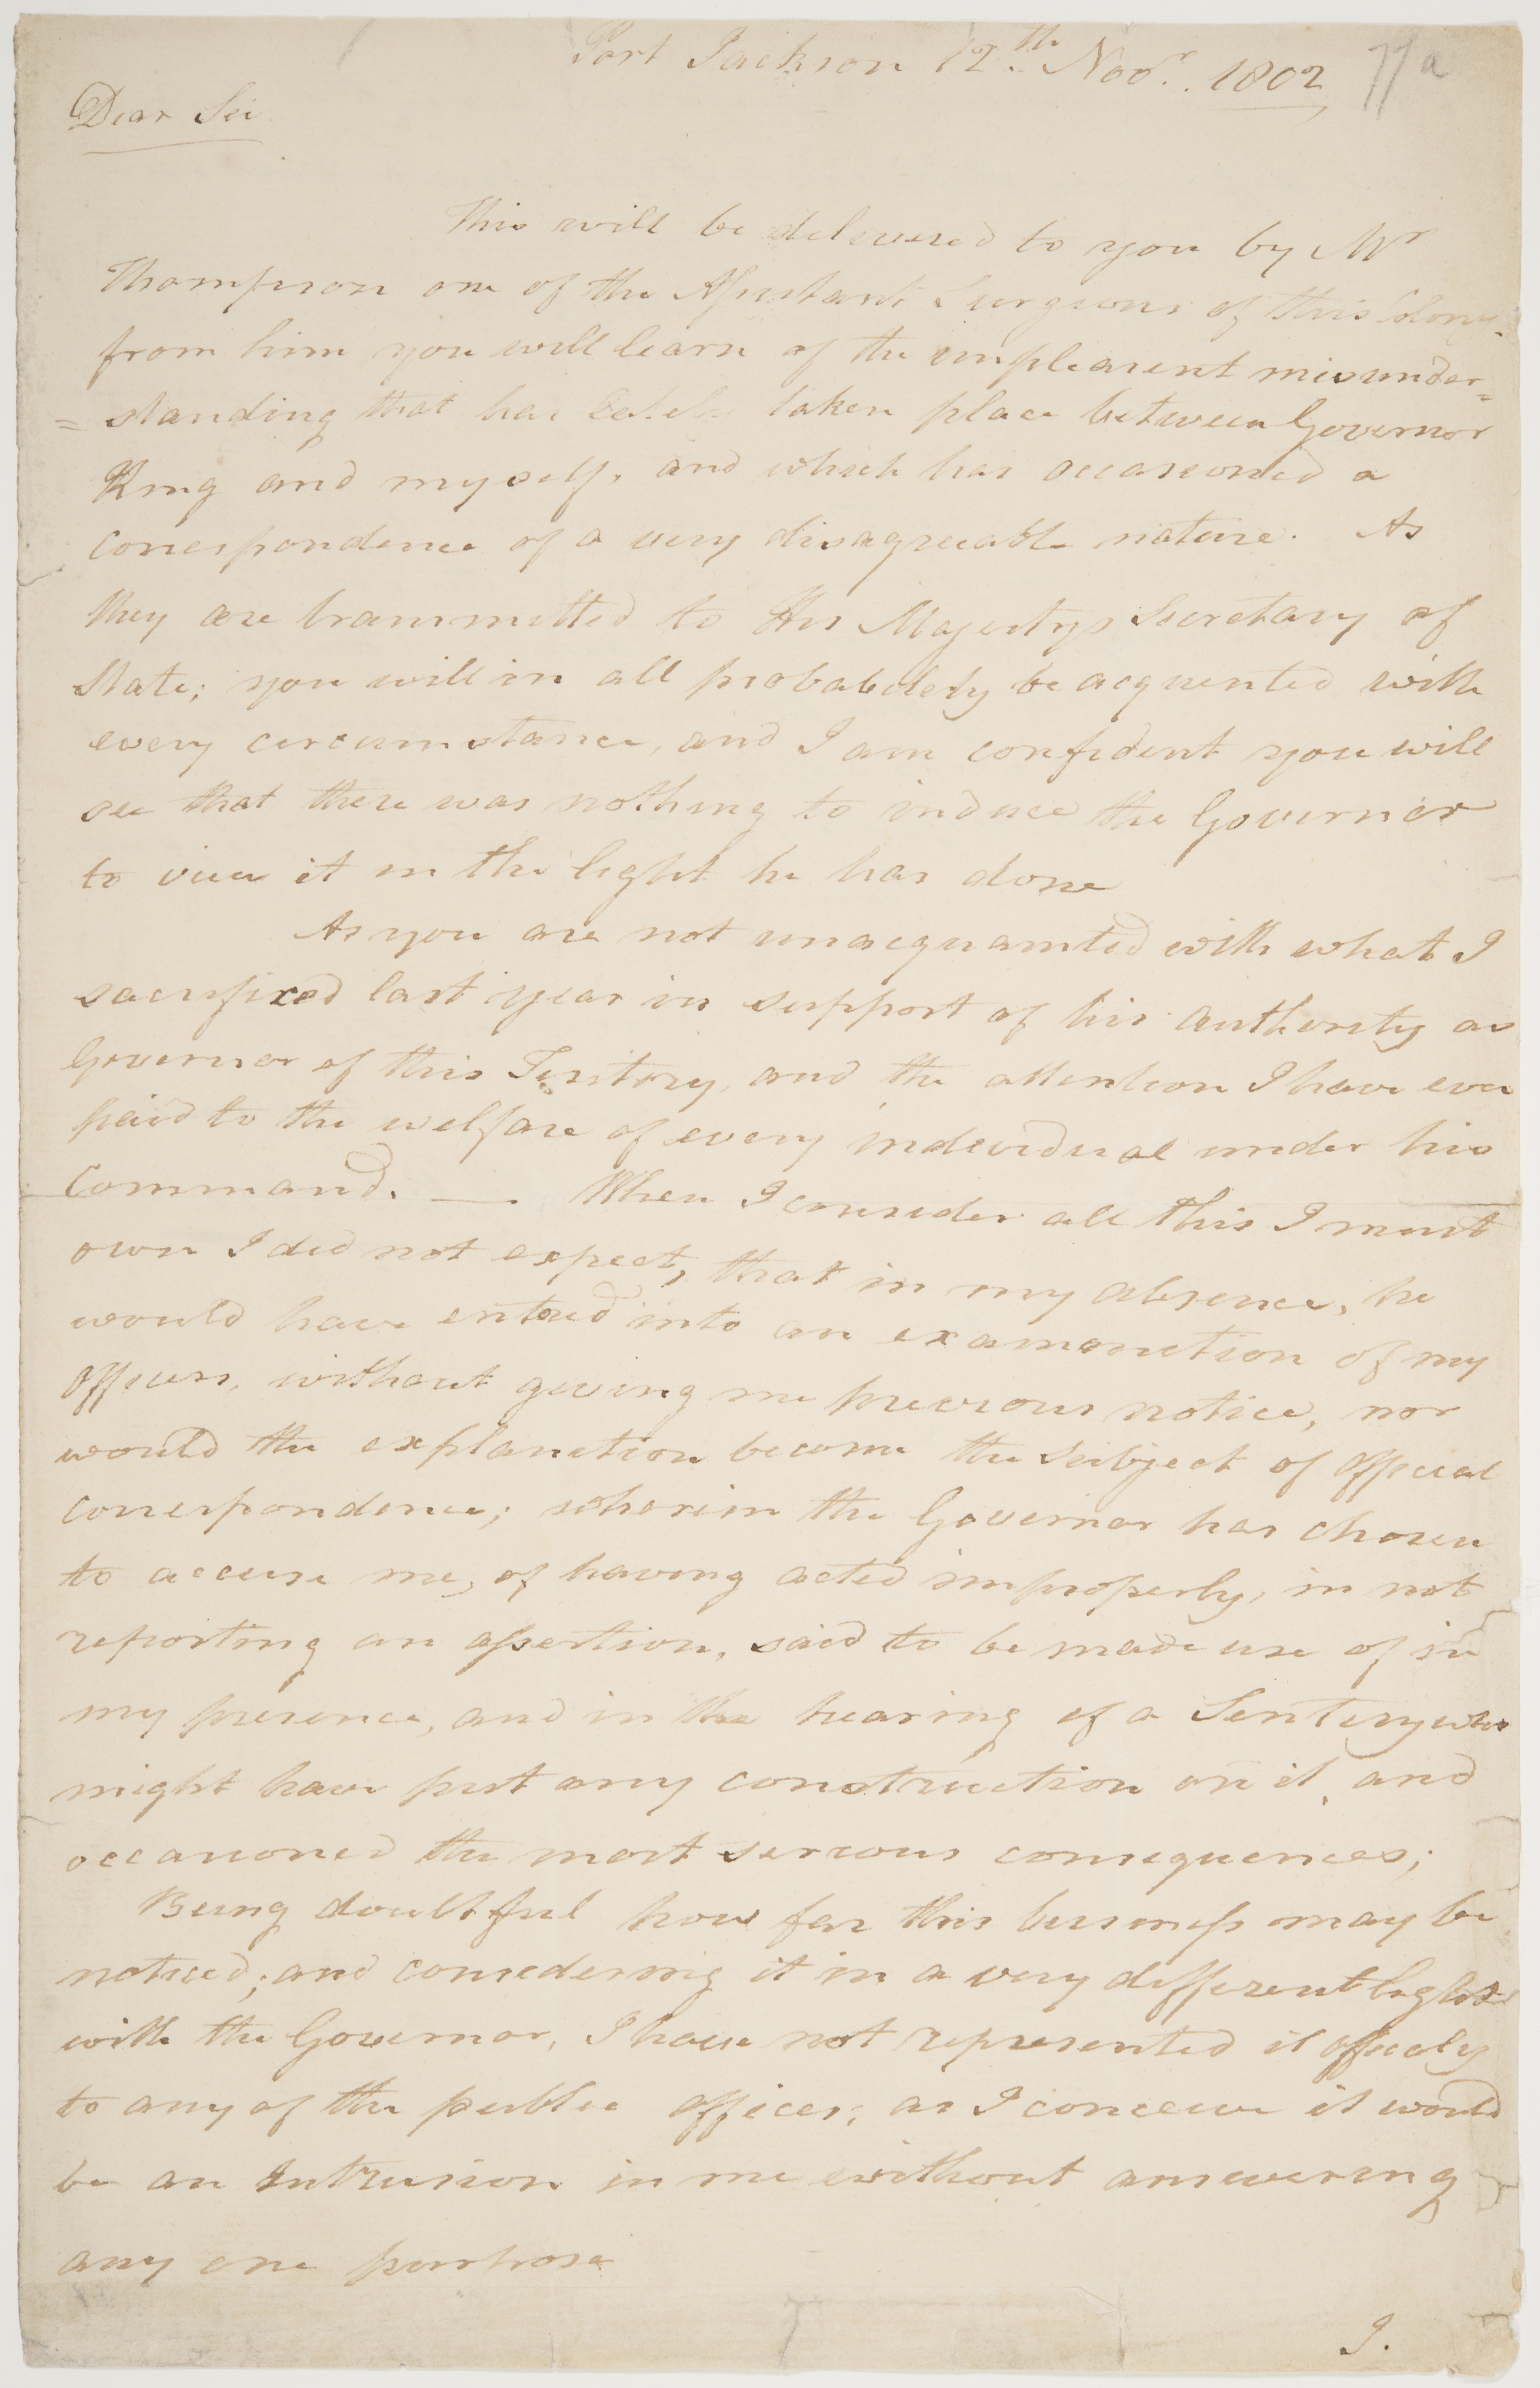 Port Jackson 12th Novr. 1802
77a
Dear Sir
This will be delivered to you by Mr
Thompson one of the Assistant Surgeons of this Colony.
from him you will learn of the unpleasent misunder=
=standing that has lately taken place between Governor
King and myself, and which has occasioned a
correspondence of a very disagreeable nature. As
they are transmitted to His Majestys Secretary of
State; you will in all probabilety be acquented with
every circumstance, and I am confident you will
see that there was nothing to induce the Governor
to view it in the light he has done
As you are not unacquainted with what I
sacrifixed last year in support of his authority as
Governor of this Teritory, and the attention I have ever
paid to the welfare of every individual under his
Command. — When I consider all this I must
own I did not expect, that in my absence, he
would have entered into an examination of my
officers, without giving me previous notice, nor
would the explanation become the subject of official
correspondence; wherein the Governor has chosen
to accuse me, of having acted improperly, in not
reporting an assertion, said to be made use of in
my presence, and in the hearing of a Sentery who
might have put any construction on it, and
occasioned the most serious consequences;
Being doubtful how far this business may be
noticed; and considering it in a very different light
with the Governor, I have not represented it officialy
to any of the public offices; as I conceive it would
be an Intrusion in me without answering
any one purpose
I.